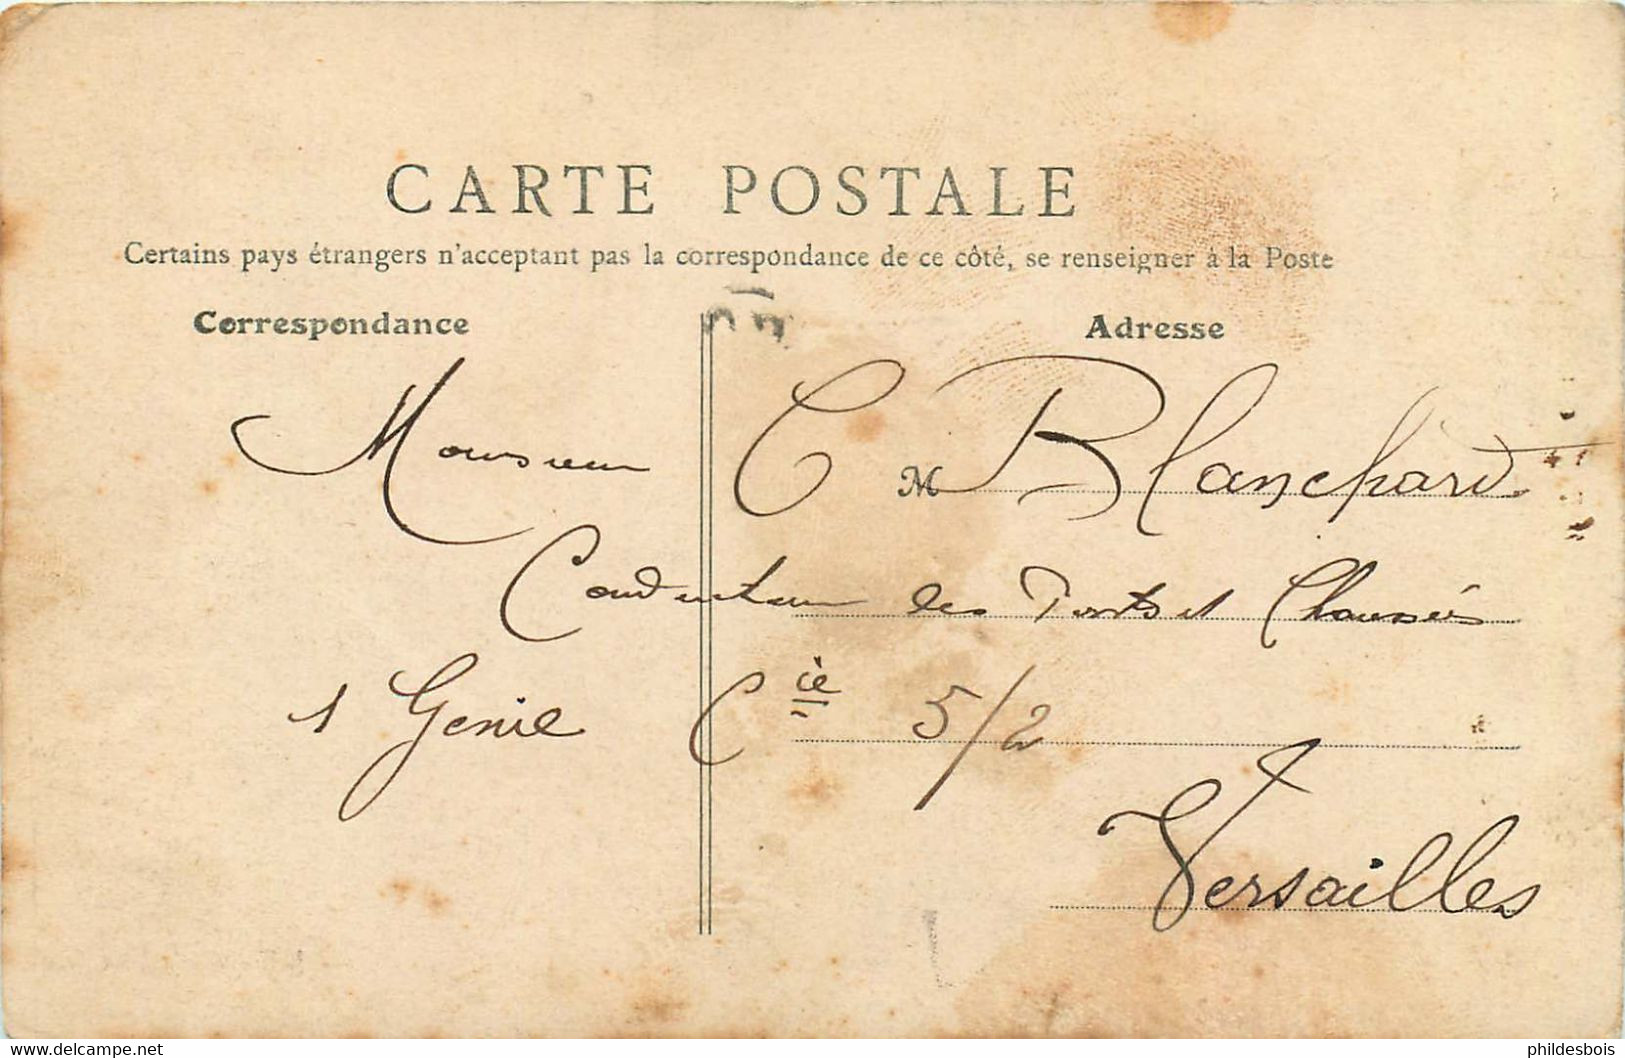 CARTE POSTALE
Certains pays étrangers n'acceptant pas la correspondance de ce côté, se renseigner à la Poste
Correspondance
Adresse
Monsieur C M Blanchard
Conducteur des Ponts et Chaussées
1 Genie Cie 5/2
Versailles
phildesbois